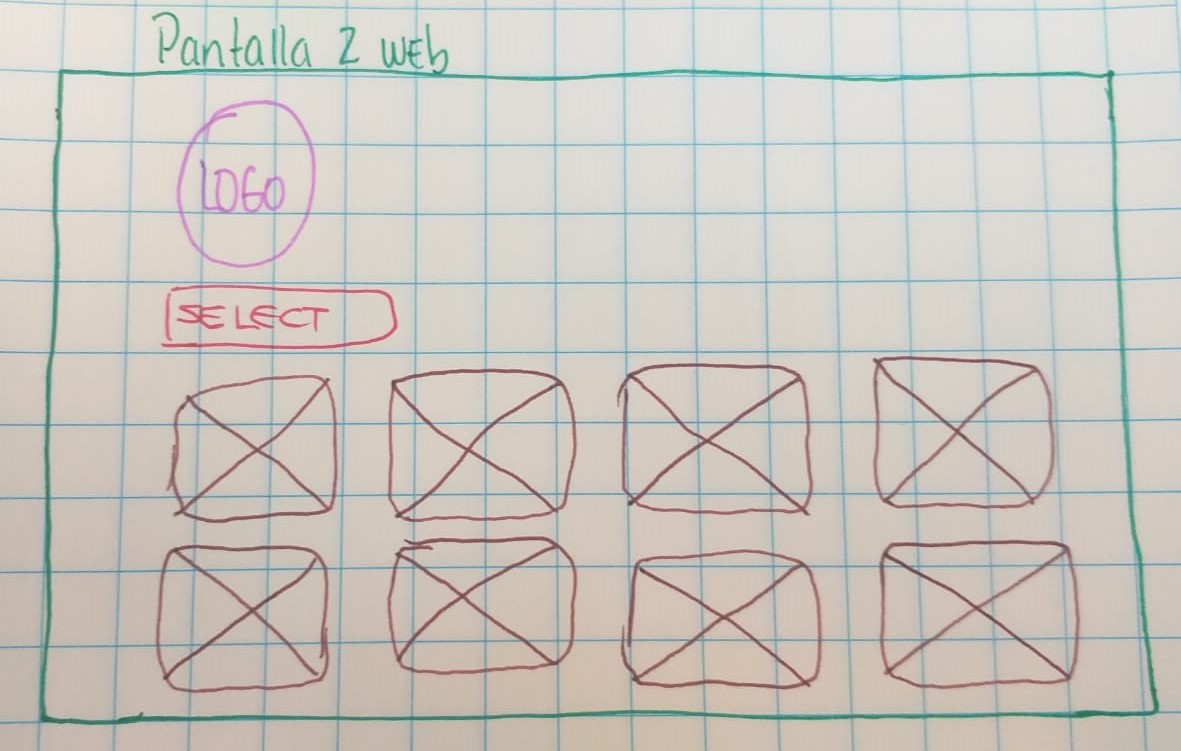 Pantalla 2 web
LOGO
SELECT